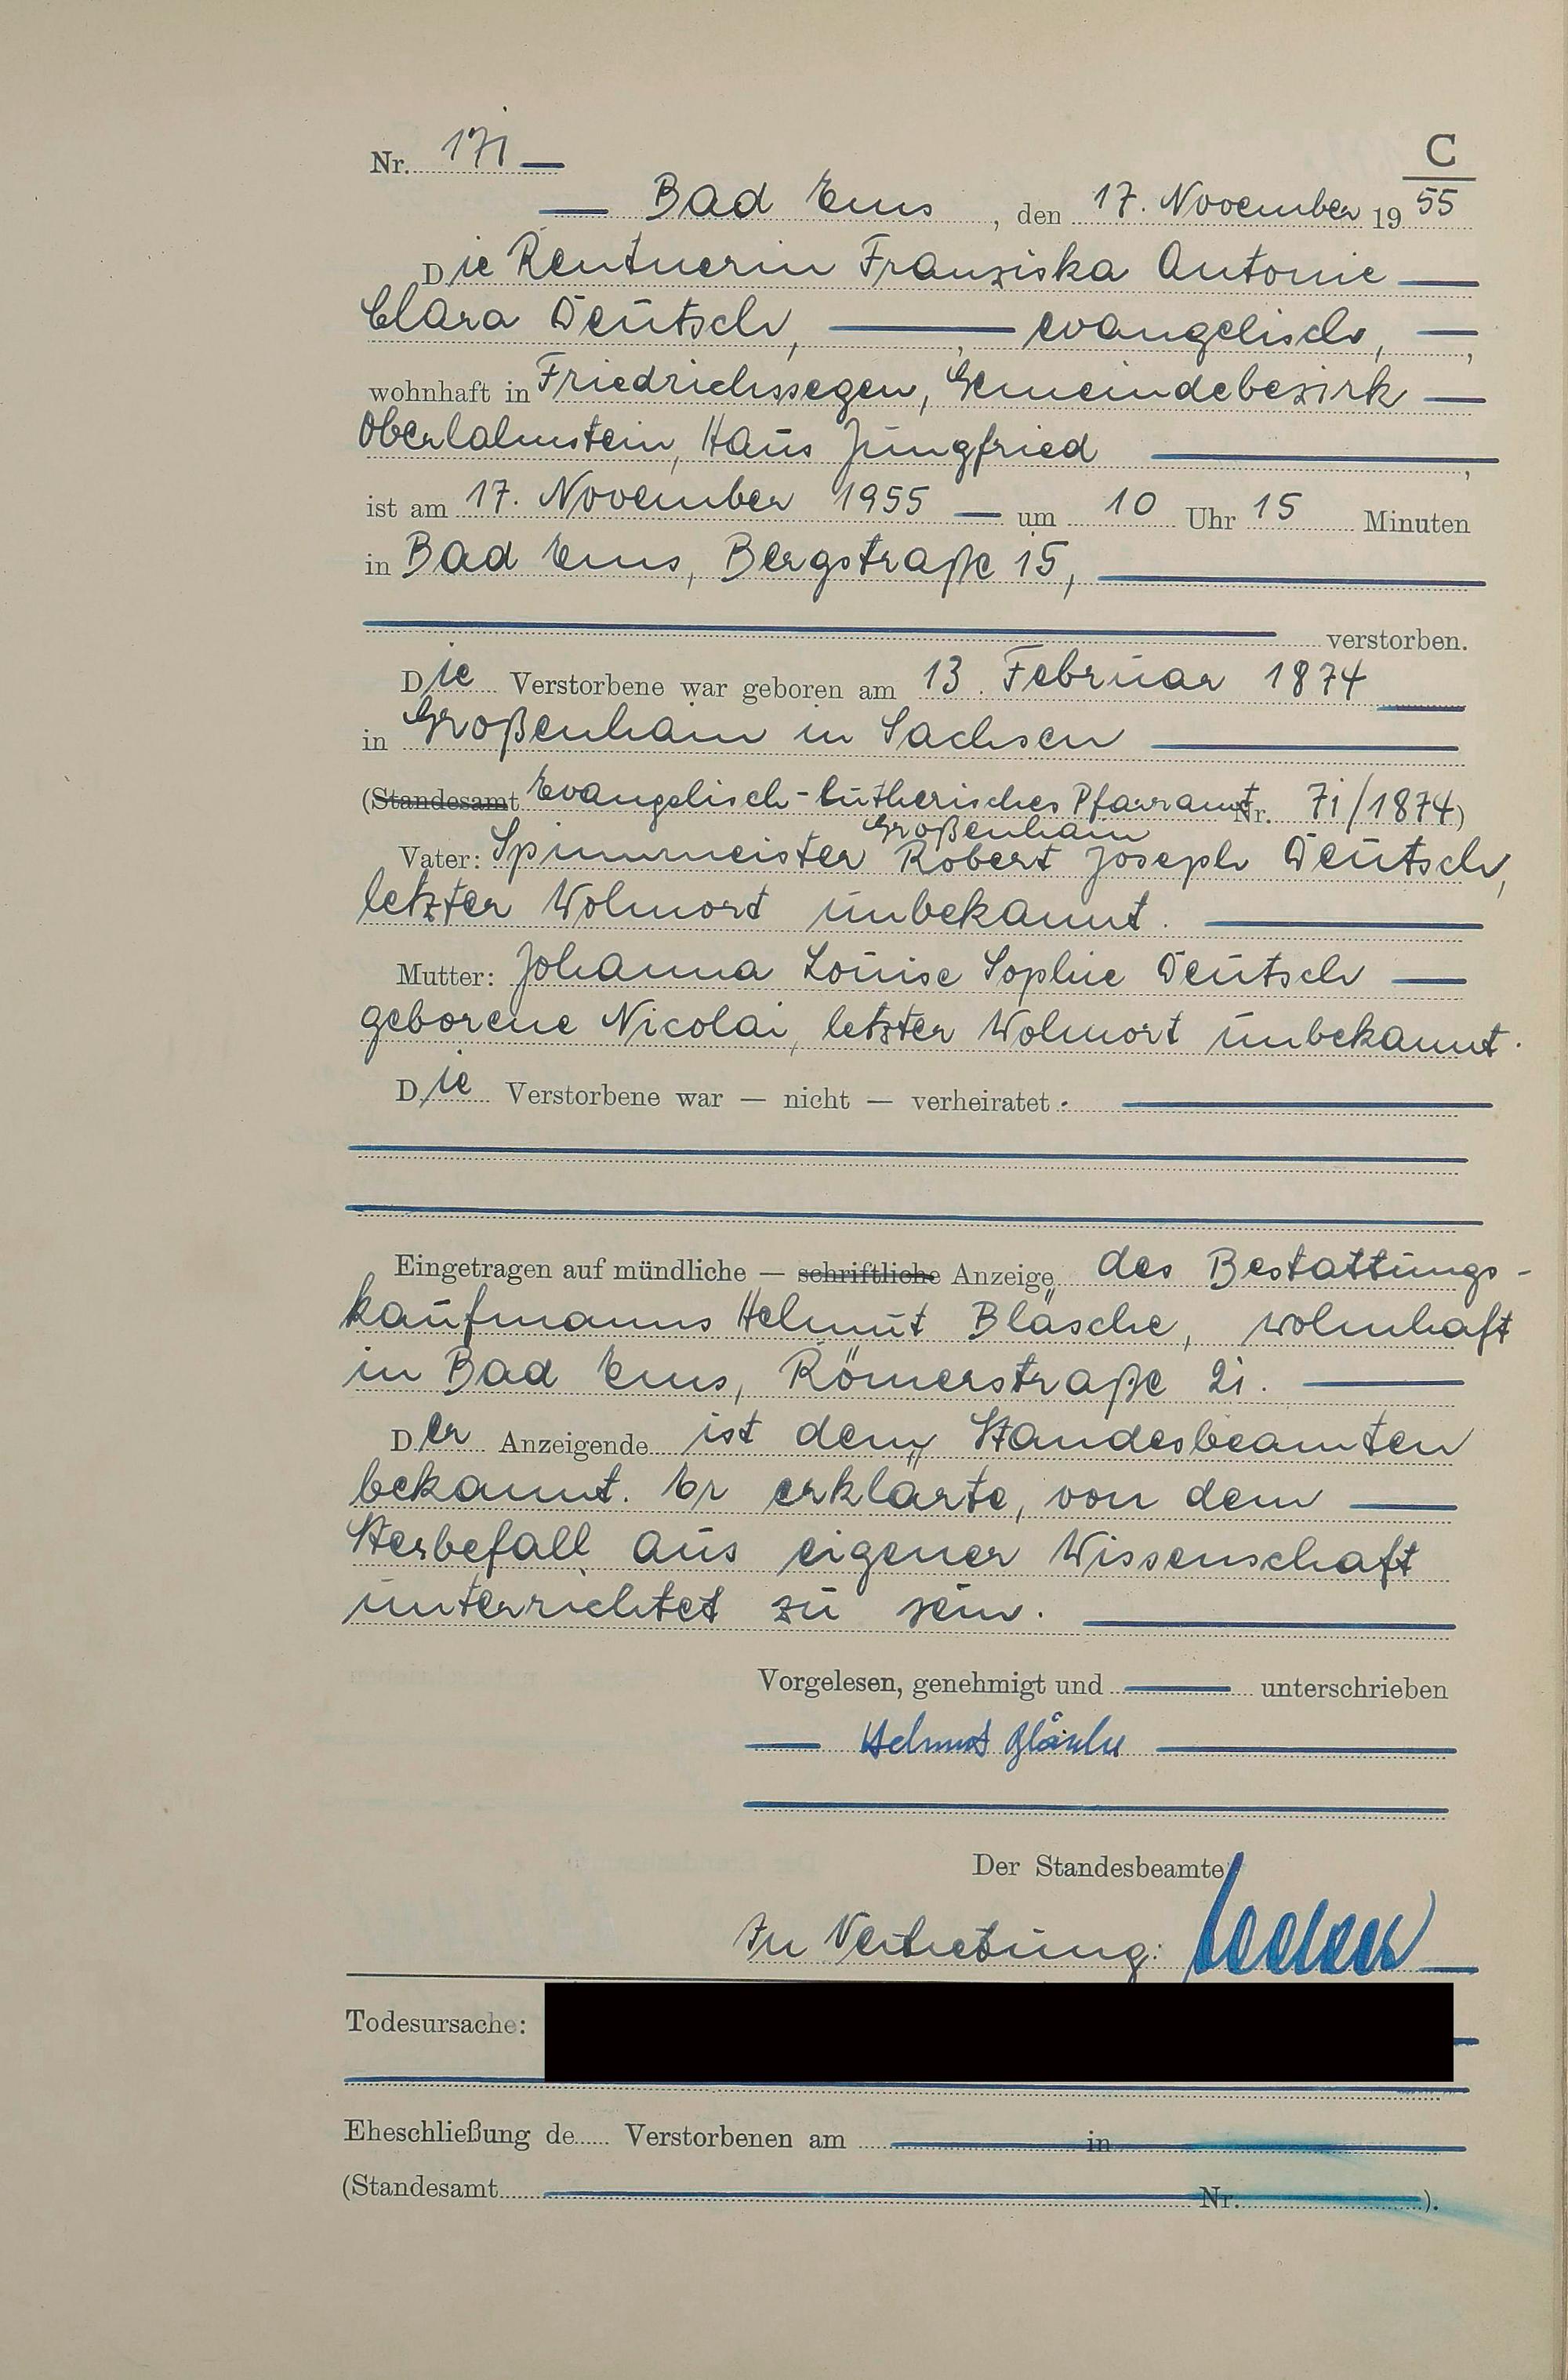 Nr. 171
C
Bad Ems, den 17. November 1955
Die Rentnerin Franziska Antonie
Clara Deutsch, evangelisch,
wohnhaft in Friedrichssegen, Gemeindebezirk
Oberlahnstein, Haus Jungfried
ist am 17. November 1955 um 10 Uhr 15 Minuten
in Bad Ems, Bergstraße 15,
verstorben.
Die Verstorbene war geboren am 13. Februar 1874
in Großenhain in Sachsen
(Standesamt Evangelisch-lutherisches Pfarramt Nr. 71/1874)
Großenhain
Vater: Spinnmeister Robert Joseph Deutsch,
letzter Wohnort unbekannt.
Mutter: Johanna Louise Sophie Deutsch
geborene Nicolai, letzter Wohnort unbekannt.
Die Verstorbene war — nicht — verheiratet.
Eingetragen auf mündliche — schriftliche Anzeige des Bestattungs-
kaufmanns Helmut Bläsche, wohnhaft
in Bad Ems, Römerstraße 21.
Der Anzeigende ist dem Standesbeamten
bekannt. Er erklärte, von dem
Sterbefall aus eigener Wissenschaft
unterrichtet zu sein.
Vorgelesen, genehmigt und unterschrieben
Helmut Bläsche
Der Standesbeamte
In Vertretung:
Todesursache:
Eheschließung de Verstorbenen am in
(Standesamt Nr. ).